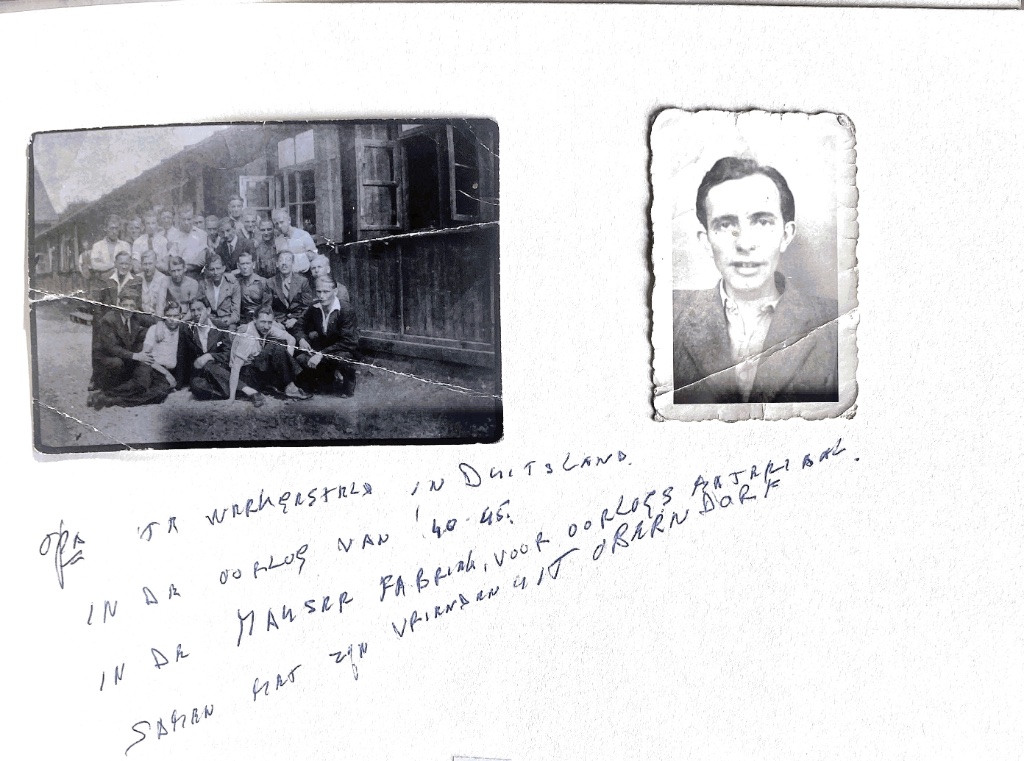 OPA TE WERKGESTELD IN DUITSLAND.
IN DE OORLOG VAN '40-45.
IN DE MAUSER FABRIEK, VOOR OORLOGS MATERIAAL.
SAMEN MET ZYN VRIENDEN UIT OBERNDORF